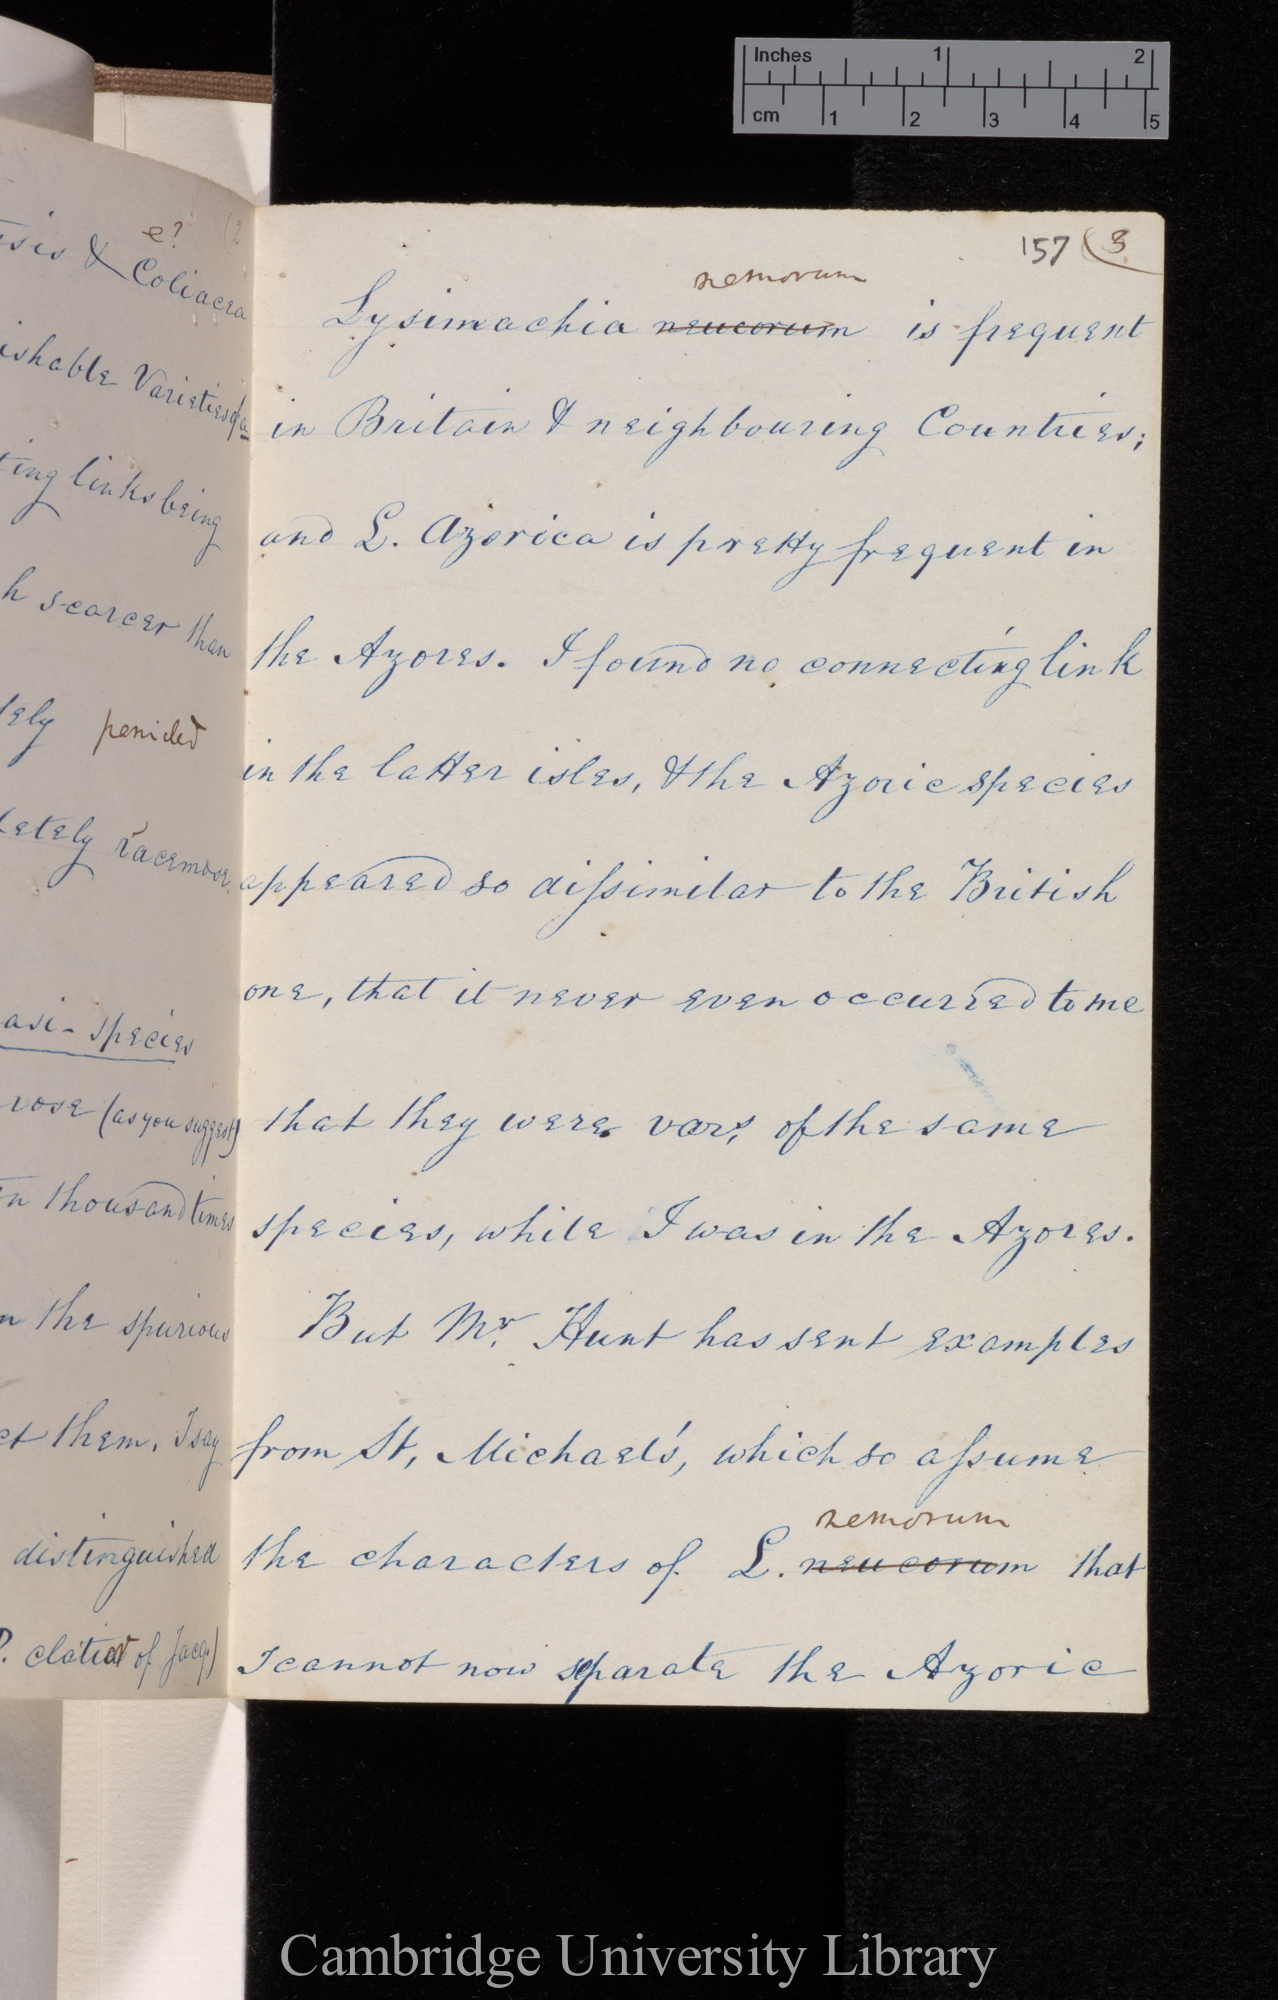 Inches 1 2
cm 1 2 3 4 5
157 (3
nemorum
Lysimachia neucorum is frequent
in Britain & neighbouring Countries;
and L. Azorica is pretty frequent in
the Azores. I found no connecting link
in the latter isles, & the Azoric species
appeared so dissimilar to the British
one, that it never even occurred to me
that they were vars, of the same
species, while I was in the Azores.
But Mr. Hunt has sent examples
from St, Michael's, which so assume
nemorum
the characters of L. neucorum that
I cannot now separate the Azoric
e? (2
& Coliacea
ishable Varieties of a
ting links being
h scarcer than
tely
letely racemose
asi-species
rose (as you suggest)
n thousand times
n the spurious
ct them. I say
distinguished
of Jacq.)
Cambridge University Library